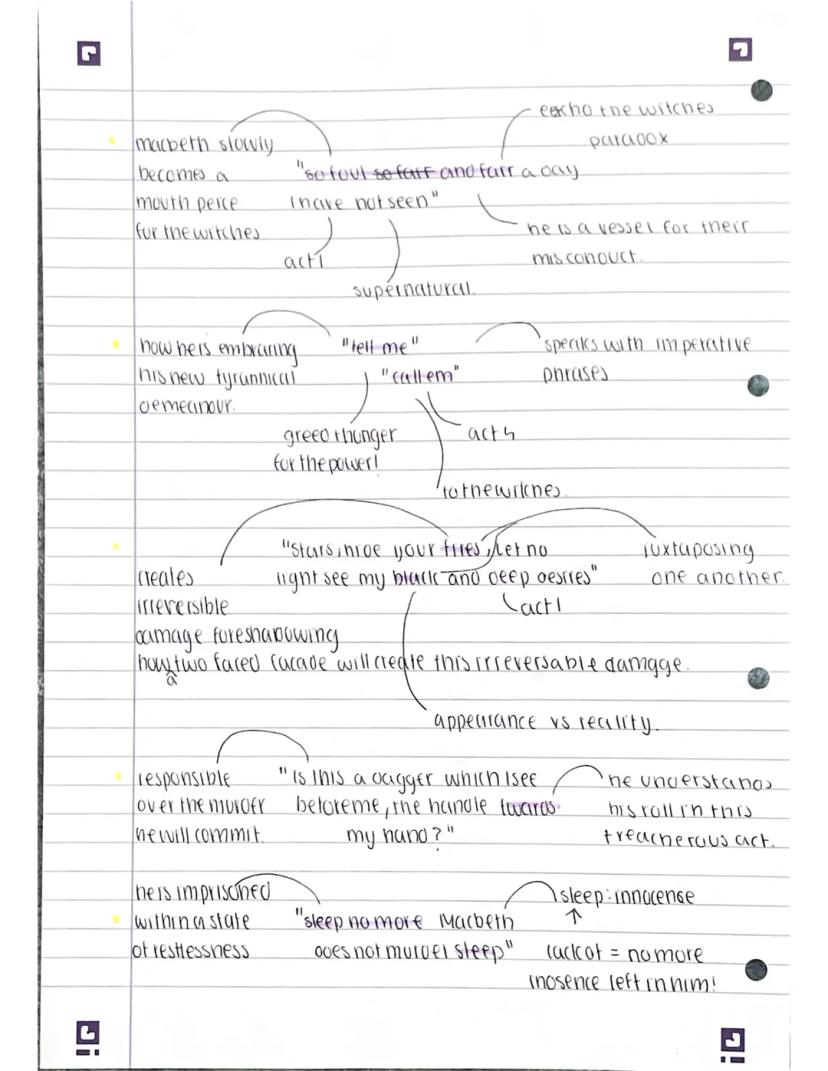 eccho the witches
paradox
macbeth slowly
becomes a
mouth peice
for the witches
"so foul so fair and fair a day
I have not seen"
he is a vessel for their
misconduct.
act 1
supernatural.
how he is embracing
his new tyrannical
demeanour.
"tell me"
"call em"
speaks with imperative
phrases
greed + hunger
for the power!
act 4
to the witches.
"stars, hide your fires, let no
light see my black and deep desires"
juxtaposing
one another.
act 1
creates
irreversible
damage foreshadowing
how a two faced facade will create this irreversable damagge.
appearance vs reality.
responsible
over the murder
he will commit.
"Is this a dagger which I see
before me, the handle towards
my hand?"
he understands
his roll in this
treacherous act.
he is imprisoned
within a state
of restlessness
"sleep no more Macbeth
does not murder sleep"
sleep: innocense
↑
lack of = no more
inosence left in him!